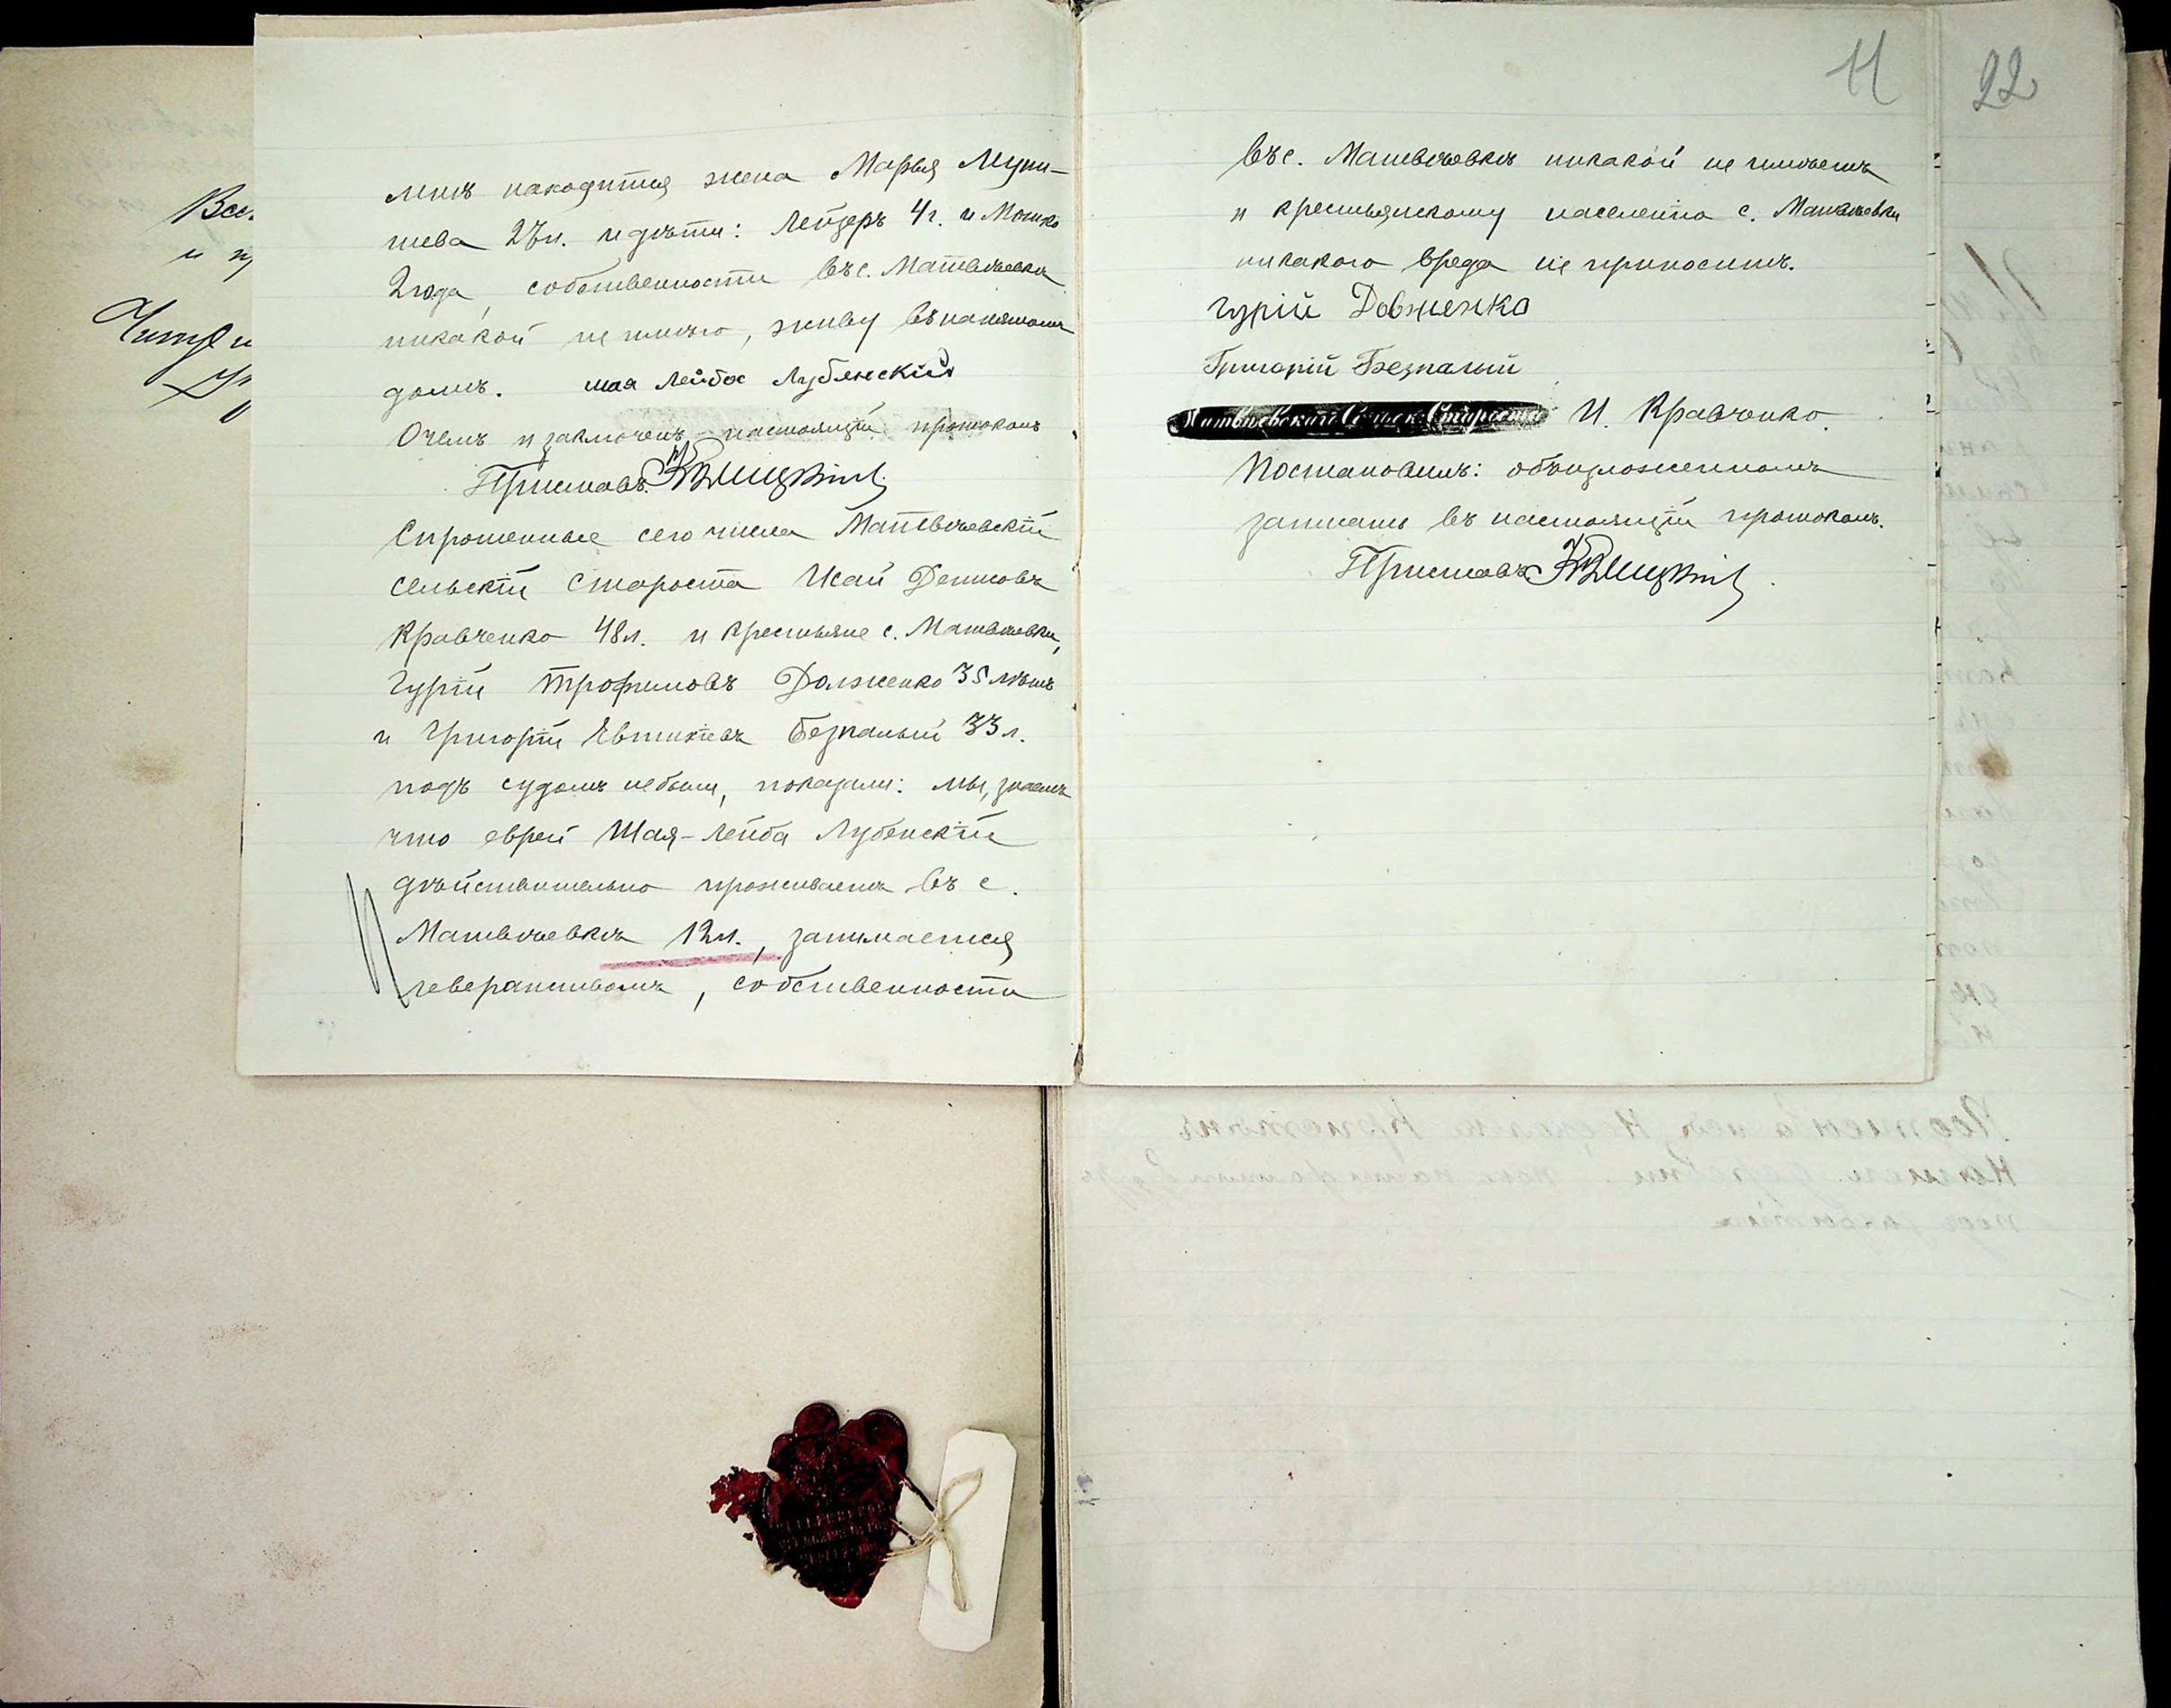 мнѣ находится жена Марья Мун-
шева 27 л. и дѣти: Лейзеръ 4 г. и Мошко
2 года, собственности въ с. Матвѣевкѣ
никакой не имѣю, живу въ нанятомъ
домѣ. Шая Лейба Лубянскій
О чемъ и заключенъ настоящій протоколъ
Приставъ
Спрошенные сего числа Матвѣевскій
сельскій староста Исай Денисовъ
Кравченко 48 л. и крестьяне с. Матвѣевки,
Гурій Трофимовъ Долженко 35 лѣтъ
и Григорій Евтихіевъ Безпалый 33 л.
подъ судомъ не были, показали: мы, знаемъ
что еврей Шая-Лейба Лубенскій
дѣйствительно проживаетъ въ с.
Матвѣевкѣ 12 л., занимается
собственности
11
въ с. Матвѣевкѣ никакой не имѣетъ
и крестьянскому населенію с. Матвѣевки
никакого вреда не приноситъ.
Гурій Довженко
Григорій Безпалый
Матвѣевскій Сельск. Староста И. Кравченко.
Постановилъ: объ изложенномъ
записать въ настоящій протоколъ.
Приставъ
22